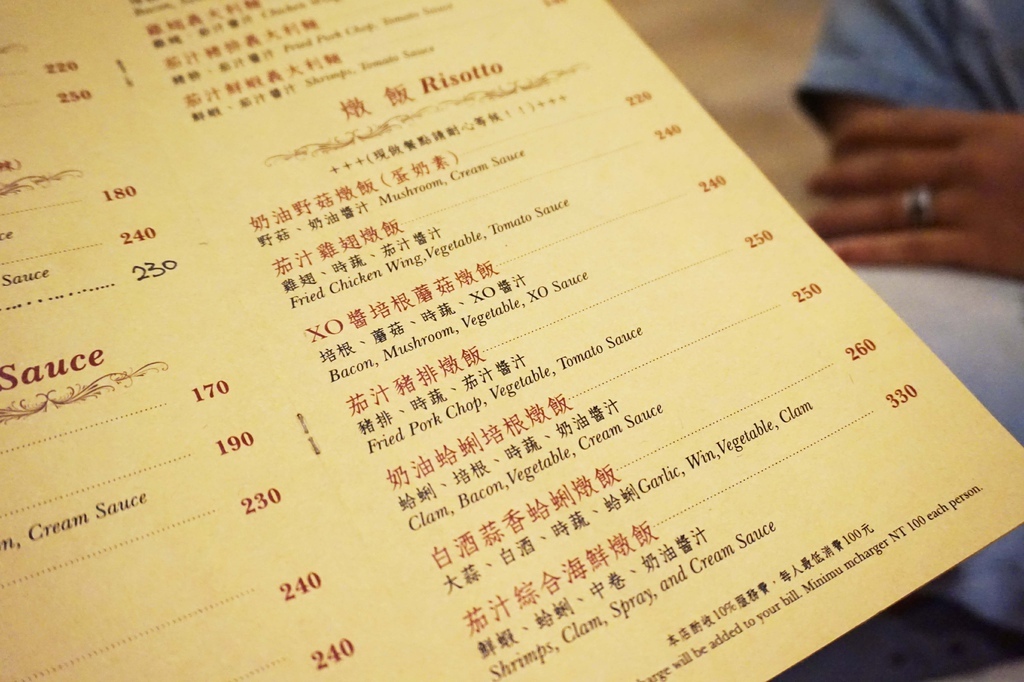 220
250
辣)
180
ce
240
Sauce
230
Sauce
170
190
n, Cream Sauce
230
240
240
雞翅義大利麵
雞翅、茄汁醬汁 Chicken Wing
茄汁豬排義大利麵
豬排、茄汁醬汁 Fried Pork Chop, Tomato Sauce
茄汁鮮蝦義大利麵
鮮蝦、茄汁醬汁 Shrimps, Tomato Sauce
燉 飯 Risotto
+++(現做餐點請耐心等候!!)+++
奶油野菇燉飯(蛋奶素) 220
野菇、奶油醬汁 Mushroom, Cream Sauce
茄汁雞翅燉飯 240
雞翅、時蔬、茄汁醬汁
Fried Chicken Wing,Vegetable, Tomato Sauce
XO醬培根蘑菇燉飯 240
培根、蘑菇、時蔬、XO醬汁
Bacon, Mushroom, Vegetable, XO Sauce
茄汁豬排燉飯 250
豬排、時蔬、茄汁醬汁
Fried Pork Chop, Vegetable, Tomato Sauce
奶油蛤蜊培根燉飯 250
蛤蜊、培根、時蔬、奶油醬汁
Clam, Bacon,Vegetable, Cream Sauce
白酒蒜香蛤蜊燉飯 260
大蒜、白酒、時蔬、蛤蜊Garlic, Win,Vegetable, Clam
茄汁綜合海鮮燉飯 330
鮮蝦、蛤蜊、中卷、奶油醬汁
Shrimps, Clam, Spray, and Cream Sauce
本店酌收10%服務費、每人最低消費100元
charge will be added to your bill. Minimu mcharger NT 100 each person.